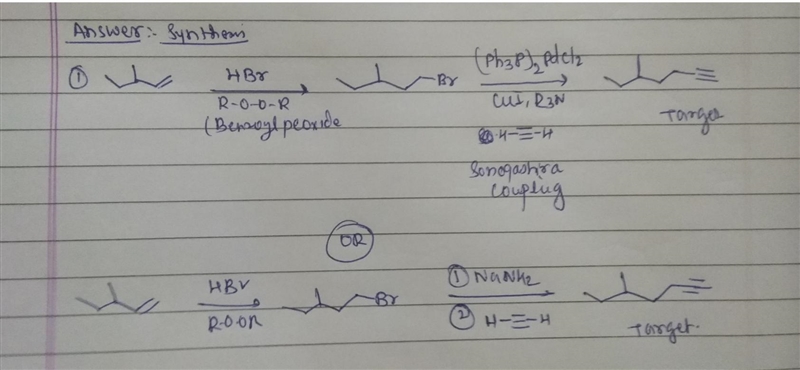 Answer:- Synthesis
① HBr
R-O-O-R
(Benzoylperoxide
Br
(Ph3P)2PdCl2
CuI, R3N
H-≡-H
Sonogashira
Coupling
Target
OR
HBr
R-O-O-R
Br
① NaNH2
② H-≡-H
Target.